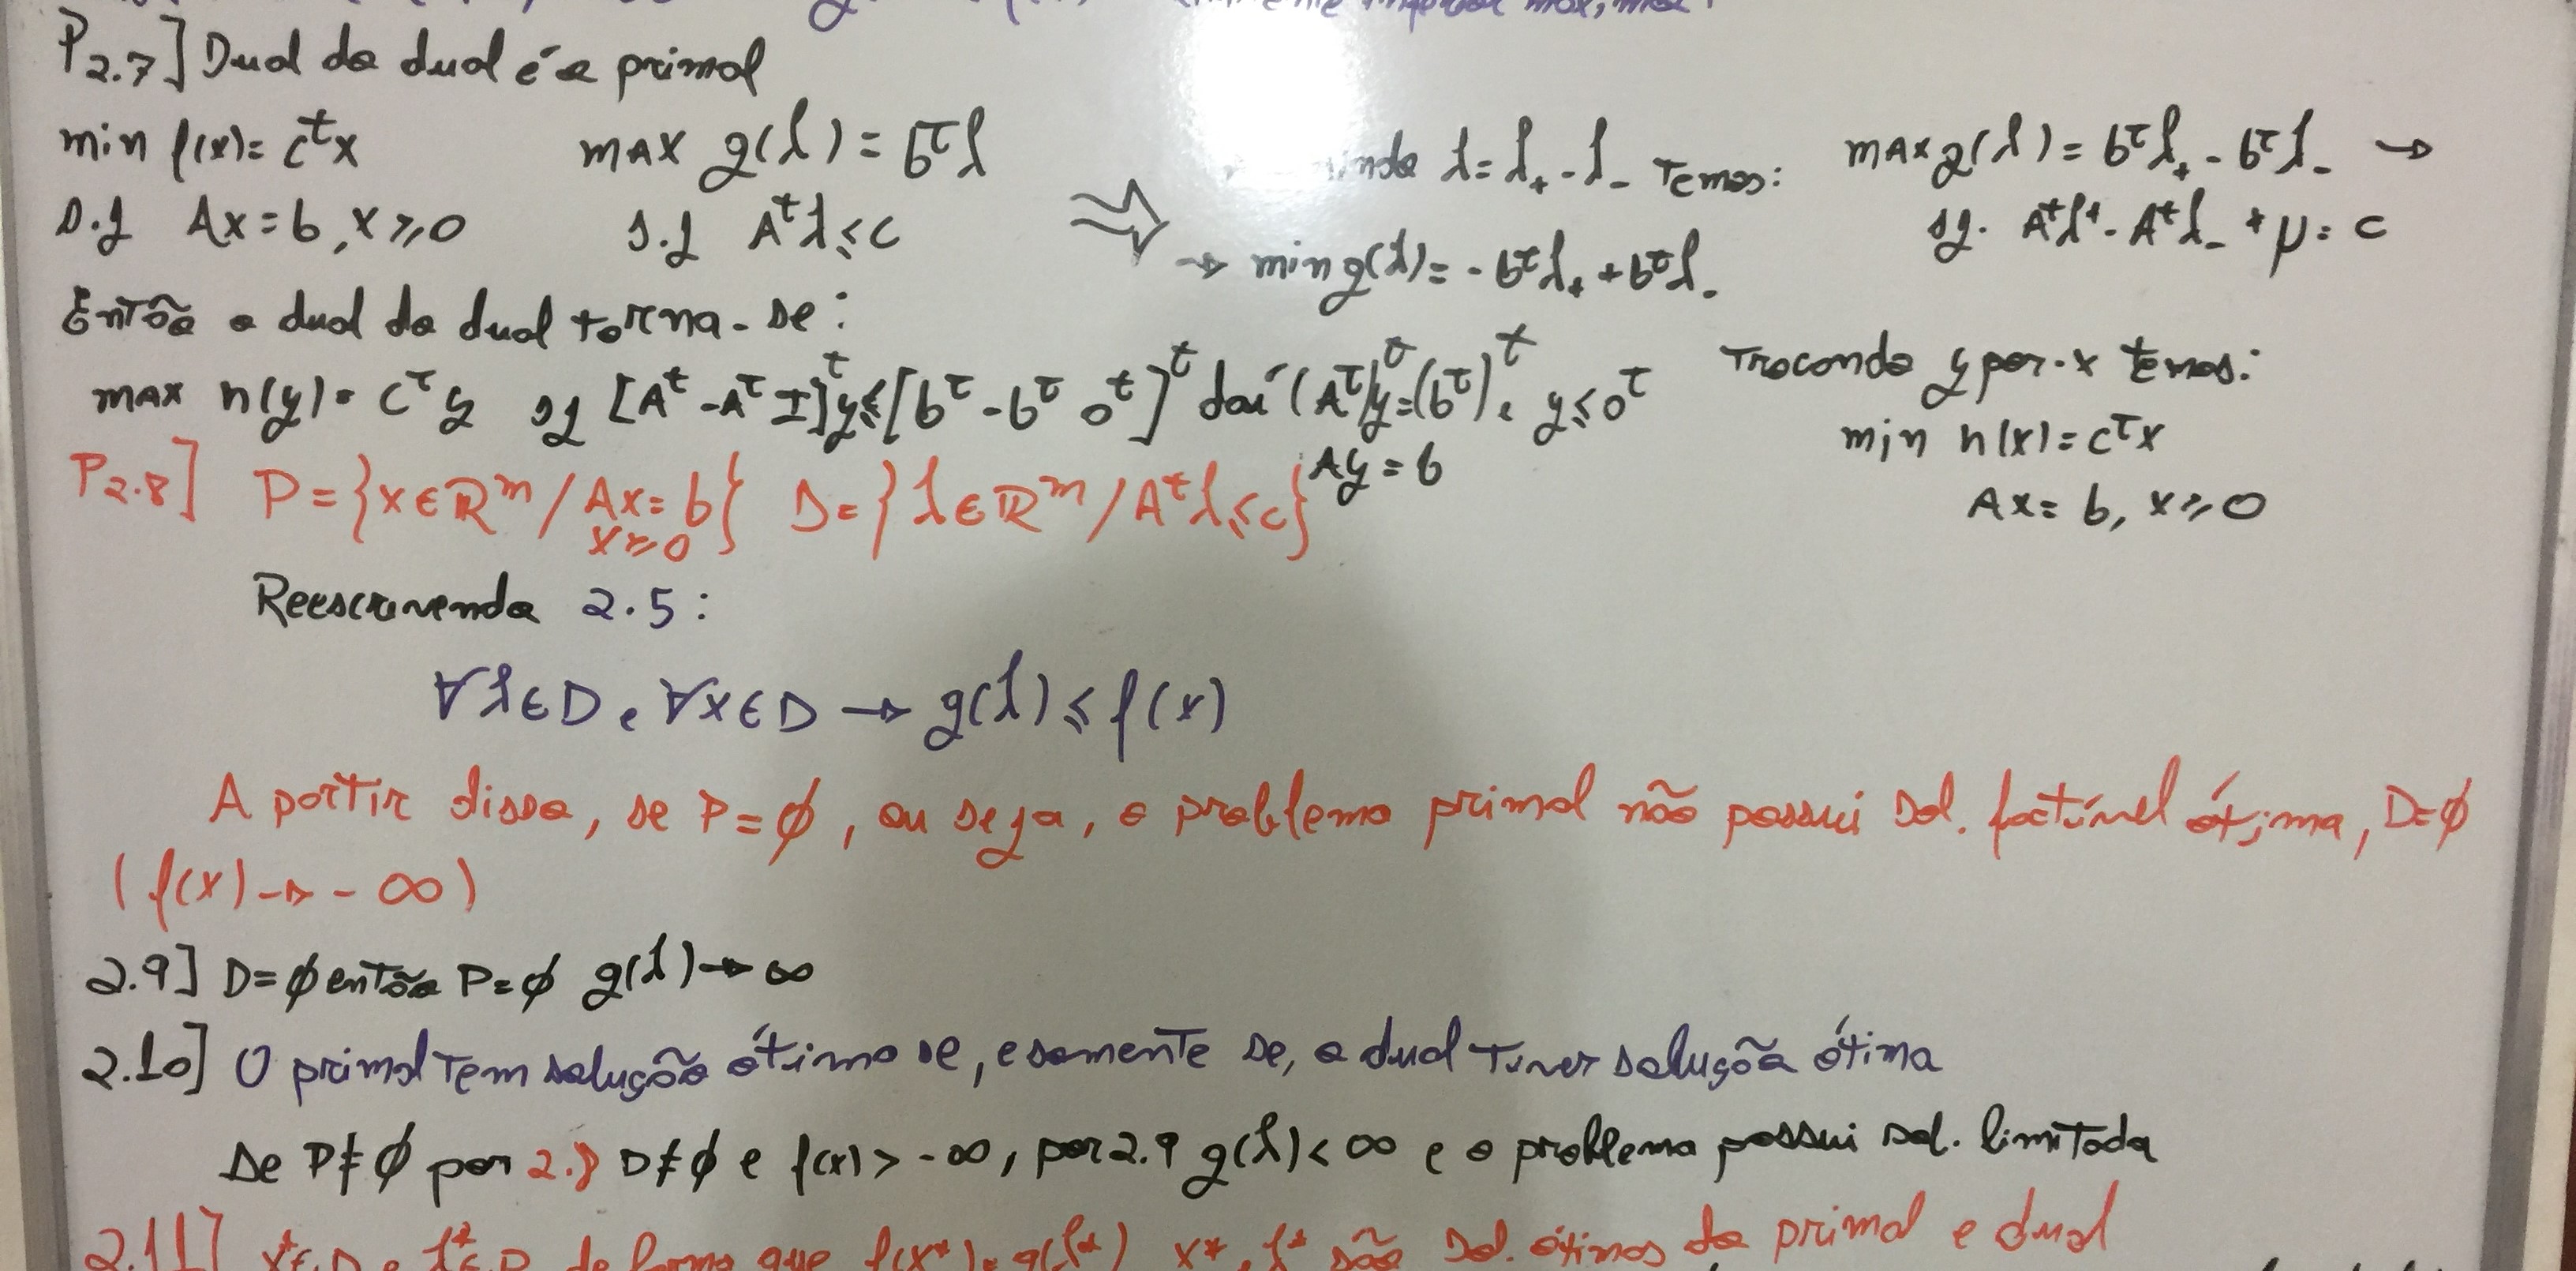 P2.7] Dual do dual é o primal
min f(x)= cᵗx max g(λ) = bᵀλ λ=λ₊-λ₋ Temos: max g(λ) = bᵀλ₊ - bᵀλ₋ →
s.j Ax=b, x≥0 s.j Aᵗλ≤c ⇒ sj. Aᵗλ⁺- Aᵗλ₋ + μ = c
→ min g(λ)= - bᵀλ₊ + bᵀλ₋
Então o dual do dual torna-se:
max h(y)= cᵀy sj [Aᵗ -Aᵀ I]ᵗy≤[bᵀ -bᵀ 0ᵗ]ᵗ daí (Aᵀ)ᵗy=(bᵀ)ᵗ e y≤0ᵀ
Ay = b
Trocando y por -x temos:
min h(x)=cᵀx
Ax= b, x≥0
P2.8] P={x∈ℝⁿ/Ax=b} D={λ∈ℝᵐ/Aᵗλ≤c}
x≥0
Reescrevendo 2.5:
∀λ∈D e ∀x∈D → g(λ)≤f(x)
A partir disso, se P=∅, ou seja, o problema primal não possui sol. factível ótima, D=∅
(f(x)→ - ∞)
2.9] D=∅ então P=∅ g(λ)→∞
2.10] O primal tem solução ótima se, e somente se, o dual tiver solução ótima
Se P≠∅ por 2.8 D≠∅ e f(x)>-∞, por 2.9 g(λ)<∞ e o problema possui sol. limitada
2.11] x*∈D e λ*∈D de forma que f(x*)=g(λ*) x* e λ* são sol. ótimas do primal e dual